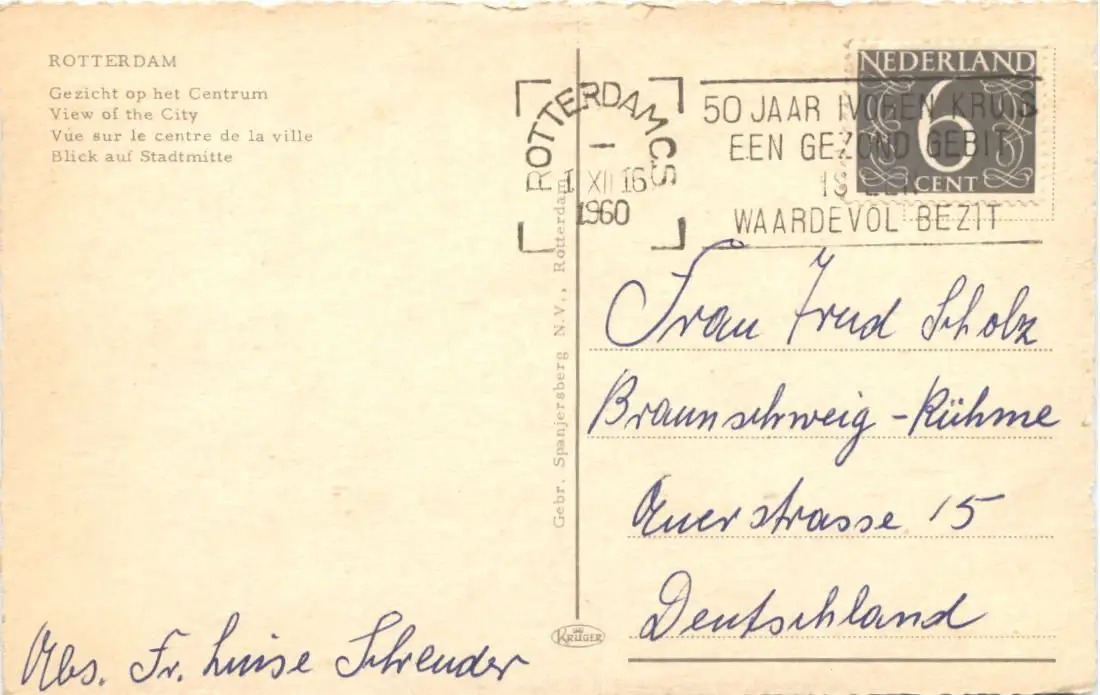 ROTTERDAM
Gezicht op het Centrum
View of the City
Vue sur le centre de la ville
Blick auf Stadtmitte
Gebr. Spanjersberg N.V., Rotterdam
KRÜGER
ROTTERDAM CS
1 XII 16
1960
50 JAAR IVOREN KRUIS
EEN GEZOND GEBIT
IS EEN
WAARDEVOL BEZIT
NEDERLAND
6
CENT
Frau Trud Scholz
Braunschweig-Rühme
Auerstrasse 15
Deutschland
Abs. Fr. Luise Schreuder